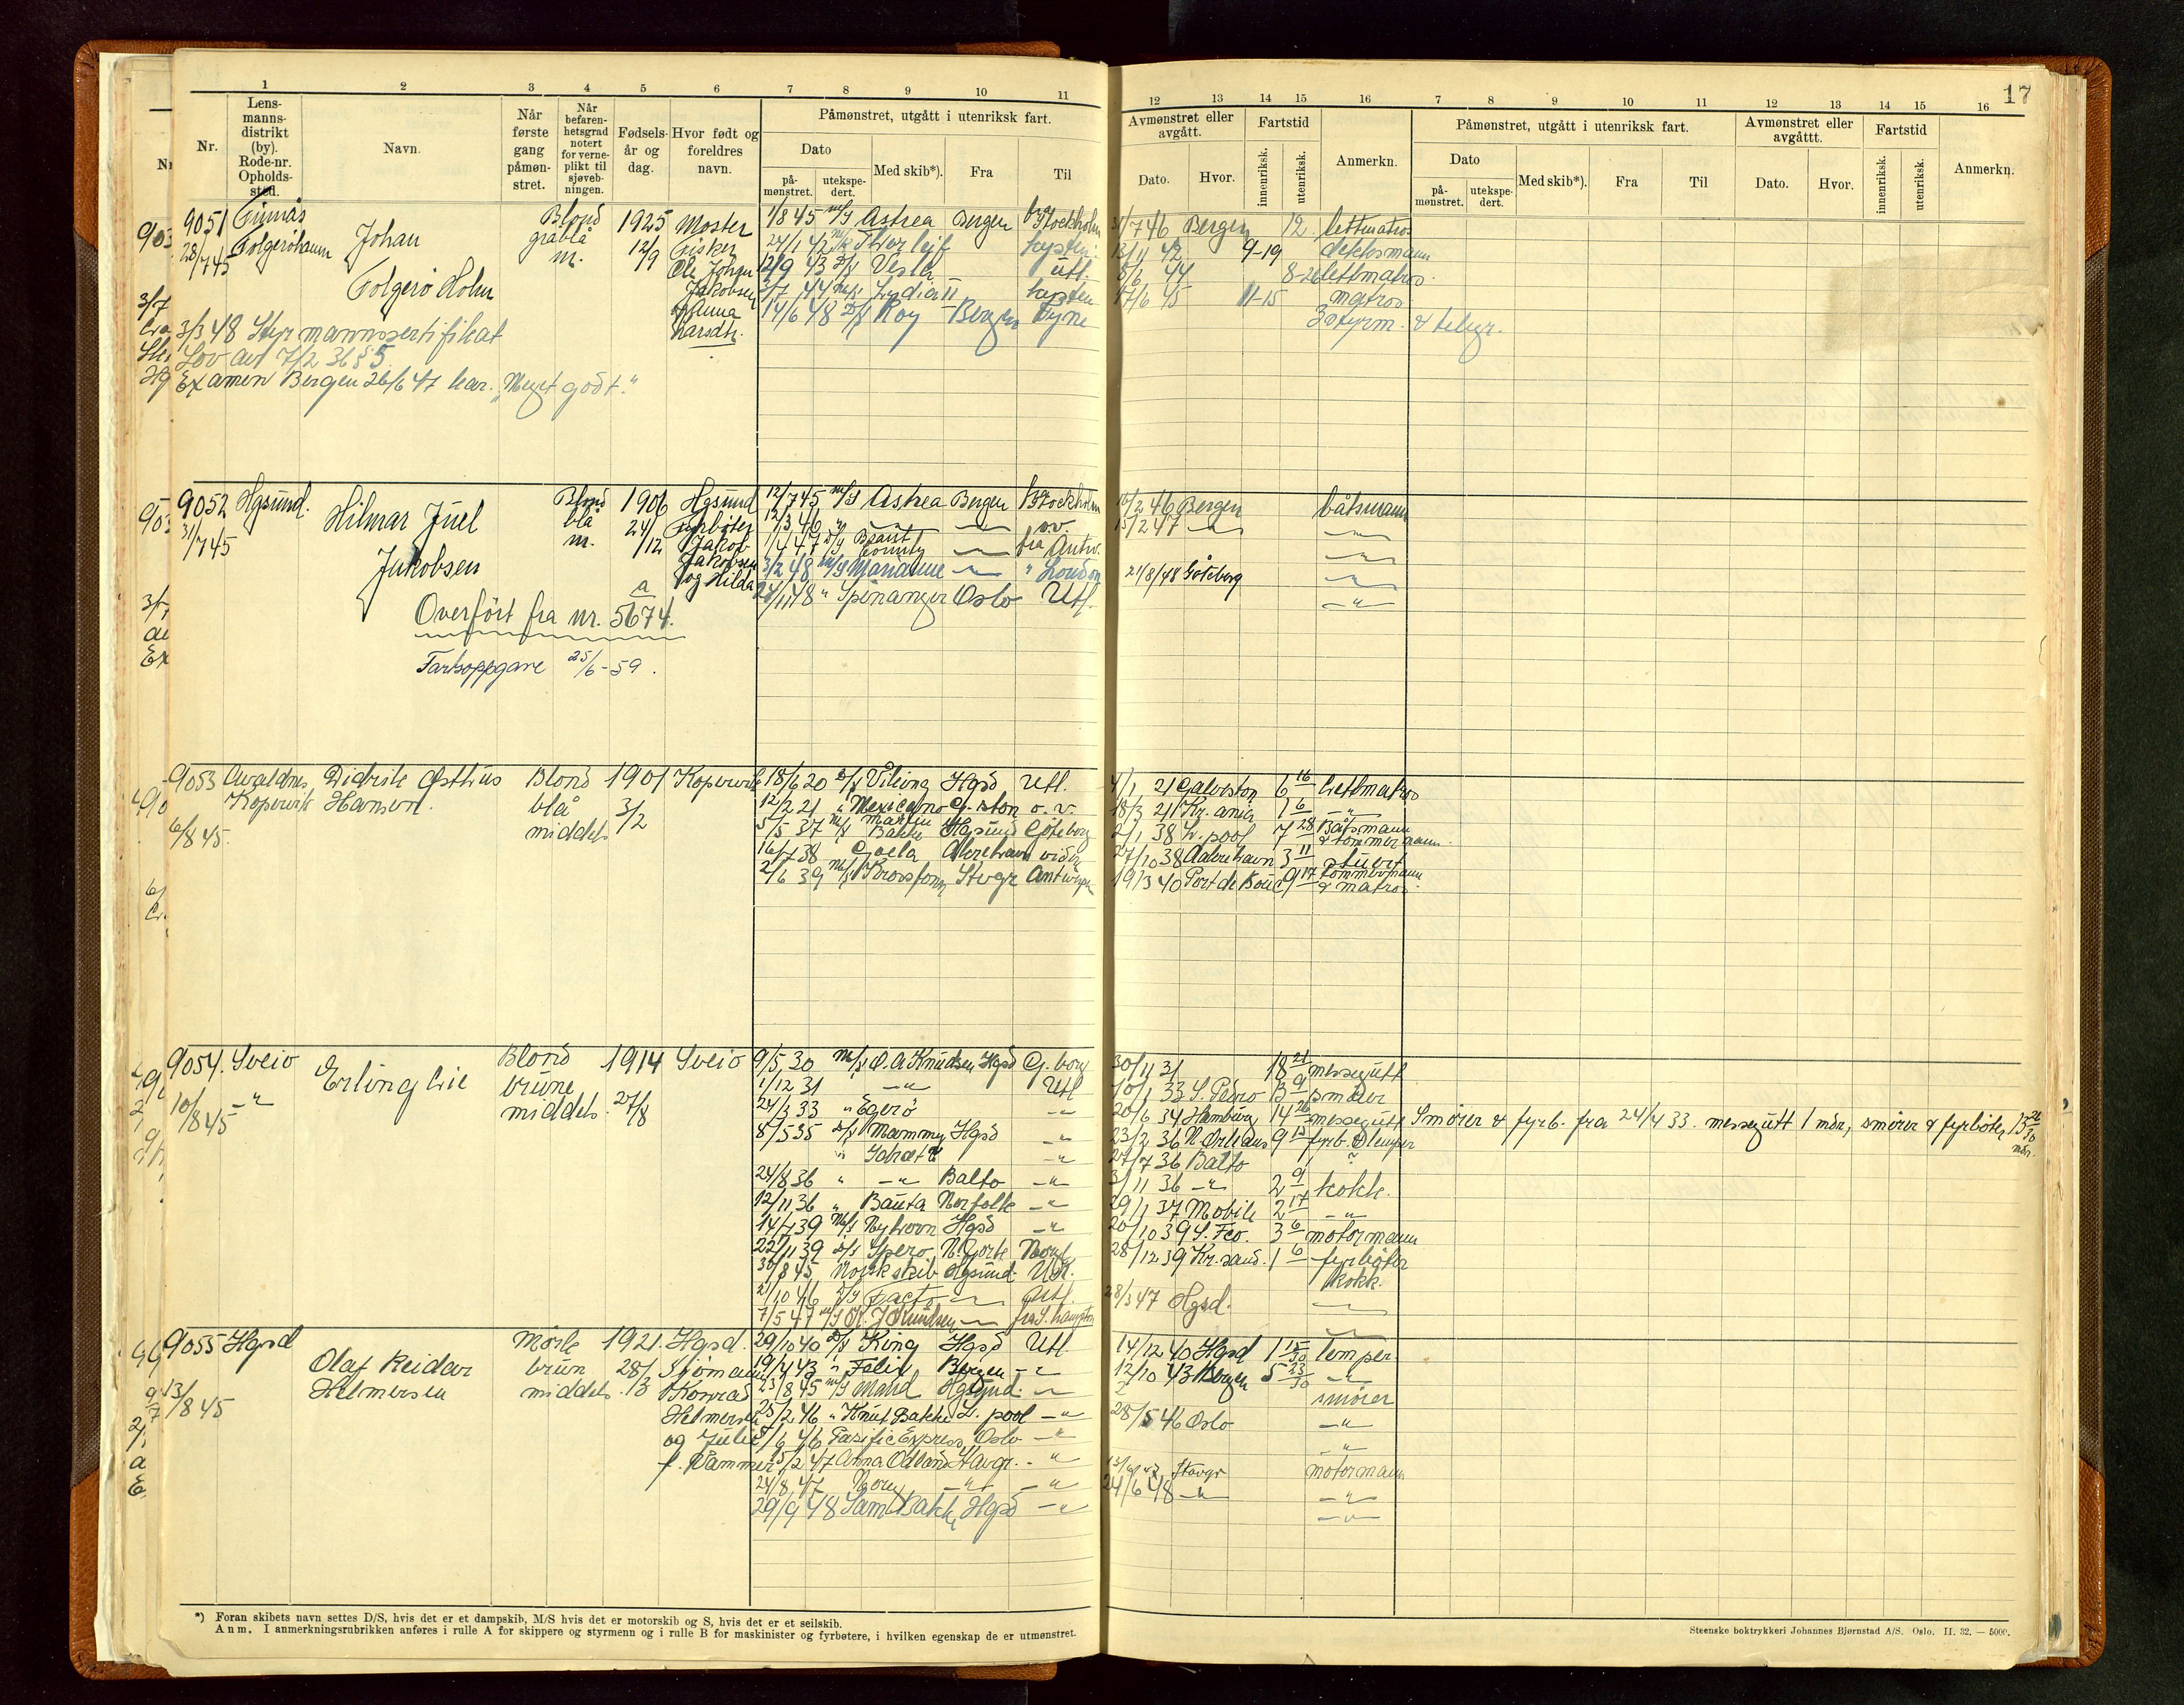 17
1 2 3 4 5 6 7 8 9 10 11 12 13 14 15 16 7 8 9 10 11 12 13 14 15 16
Nr. Lensmannsdistrikt (by). Rode-nr. Opholdssted. Navn. Når første gang påmønstret. Når befarenhetsgrad notert for verneplikt til sjøvebningen. Fødselsår og dag. Hvor født og foreldres navn.
Påmønstret, utgått i utenriksk fart. Avmønstret eller avgått. Fartstid Anmerkn.
Dato Med skib*). Fra Til Dato. Hvor. innenriksk. utenriksk.
påmønstret. utekspedert.
Påmønstret, utgått i utenriksk fart. Avmønstret eller avgåttt. Fartstid Anmerkn.
Dato Med skib*). Fra Til Dato. Hvor. innenriksk. utenriksk.
påmønstret. utekspedert.
9051 Finnås Blond 1925 Moster 1/8 45 M/S Astrea Bergen fra Stockholm 31/7 46 Bergen 12 lettmatros
28/7 45 Folgerøhamn Johan gråblå 12/9 Fisker 24/1 42 M/K Thorleif kysten 13/11 42 9-19 dekksmann
m. Ole Johan 12/9 43 D/S Vestra utl. 8/6 44 8-26 lettmatros.
Folgerø Holm Jakobsen 3/7 44 M/K Lydia II kysten 17/6 45 11-15 matros
14/6 48 D/S Roy Bergen Tyne 3 styrm. & telegr.
3/3 48 Styrmannssertifikat
Lov av 7/2 36 § 5.
Examen Bergen 26/6 47 kar. "Meget godt."
9052 Hgsund. Blond 1906 Hgsund 12/7 45 M/S Astrea Bergen fra Stockholm 15/2 46 Bergen båtsmann
31/7 45 Hilmar Juel blå 24/12 fyrbøter 12/3 46 " —"— —"— o.v. 15/2 47 —"— —"—
m. Jakob 1/4 47 D/S Brant County —"— fra Antw. —"—
Jakobsen Jakobsen 3/2 48 M/S Marianne —"— " London 21/8/48 Göteborg —"—
og Hilda 24/11 48 " Spinanger Oslo Utl. —"—
Overført fra nr. 5674.
Fartsoppgave 25/6-59.
9053 Avaldnes Didrik Østhus Blond 1901 Kopervik 18/6 20 D/S Viking Hgsd Utl. 4/1 21 Galveston 6 16 Lettmatros
Kopervik Hansen. blå 3/2 12/2 21 " Mexicano G.ston o.v. 18/3 21 Kr.ania 1 6 —"—
6/8 45. middels 5/5 37 M/S Martin Bakke Hgsund Göteborg 2/1 38 L.pool 7 28 Båtsmann & tømmermann.
16/7 38 Goela Akrehavn viden 27/10 38 Aakrehavn 3 11 stuert
2/6 39 M/S Kronsfonn Stvgr Antwerpen 19/3 40 Port de Bouc 9 17 Tømmermann & matros.
9054. Sveio Blond 1914 Sveio 9/5 30 M/S O. A. Knudsen Hgsd G.borg 30/11 31 18 21 messegutt
Erling Lie brune 27/8 1/12 31 —"— Utl 10/1 33 S. Pedro 13 9 smører
10/8 45 —"— middels. 24/3 33 " Egerø —"— 20/6 34 Hamburg 14 26 messegutt Smører & fyrb. fra 24/4 33. messegutt 1 mdr, smører & fyrbøter 13 26/30 mdr.
8/5 35 D/S Mammy Hgsd —"— 23/2 36 N. Orleans 9 15 fyrb. & lemper
—"— 27/7 36 Balto
24/8 36 " —"— Balto —"— 3/11 36 —"— 2 9 kokk.
12/11 36 " Bauta Norfolk —"— 29/1 37 Mobile 2 17 —"—
14/7 39 M/S Nyhorn Hgsd —"— 20/10 39 S. Fco. 3 6 motormann
22/11 39 D/S Spero N. York Norf. 28/12 39 Kr.sand. 1 6 fyrbøter
30/8 45 Norsk skib Hgsund. Utl. kokk.
2/10 46 D/S Facto —"— Utl. 28/3 47 Hgsd. —"—
7/5 47 M/S K. J. Knudsen —"— fra S.hampton —"—
9055 Hgsd Mørk 1921. Hgsd. 29/10 40 D/S King Hgsd Utl 14/12 40 Hgsd 1 15/30 lemper
Olaf Reidar brun 28/3 Sjømann 19/4 43 " Felix Bergen —"— 12/10 43 Bergen 5 23/30 —"—
13/8 45 Helmersen middels. Konrad 23/8 45 M/S Marid Hgsund. —"— smører
Helmersen 25/2 46 " Knut Bakke L. pool —"— 28/5 46 Oslo —"—
og Julie 5/6 46 Pasific Express Oslo —"— —"—
f. Vammen 15/2 47 Anna Odland Stavgr. —"— 13/6/47 Stavgr motormann
24/8 47 Norey —"— —"— 24/6 48 —"— —"—
29/9 48 Sam Bakke Hgsd —"— —"—
*) Foran skibets navn settes D/S, hvis det er et dampskib, M/S hvis det er motorskib og S, hvis det er et seilskib.
Anm. I anmerkningsrubrikken anføres i rulle A for skippere og styrmenn og i rulle B for maskinister og fyrbøtere, i hvilken egenskap de er utmønstret.
Steenske boktrykkeri Johannes Bjørnstad A/S. Oslo. II. 32. — 5000.